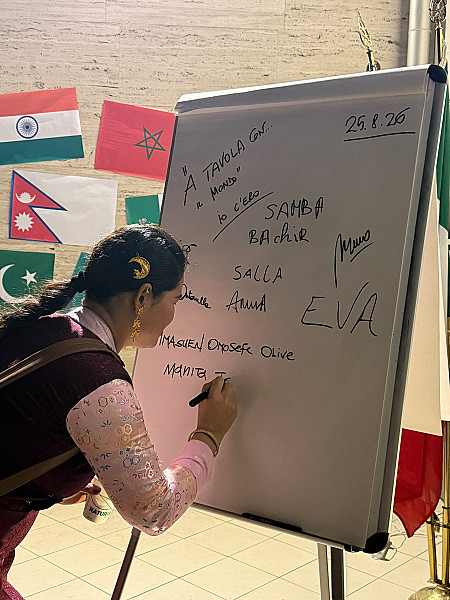 25.8.26
"A TAVOLA CON...
IL MONDO"
IO C'ERO
SAMBA
BACHIR
SALLA
ANNA
EVA
IMASUEN OMOSEFE OLIVE
MANITA T
NATURE